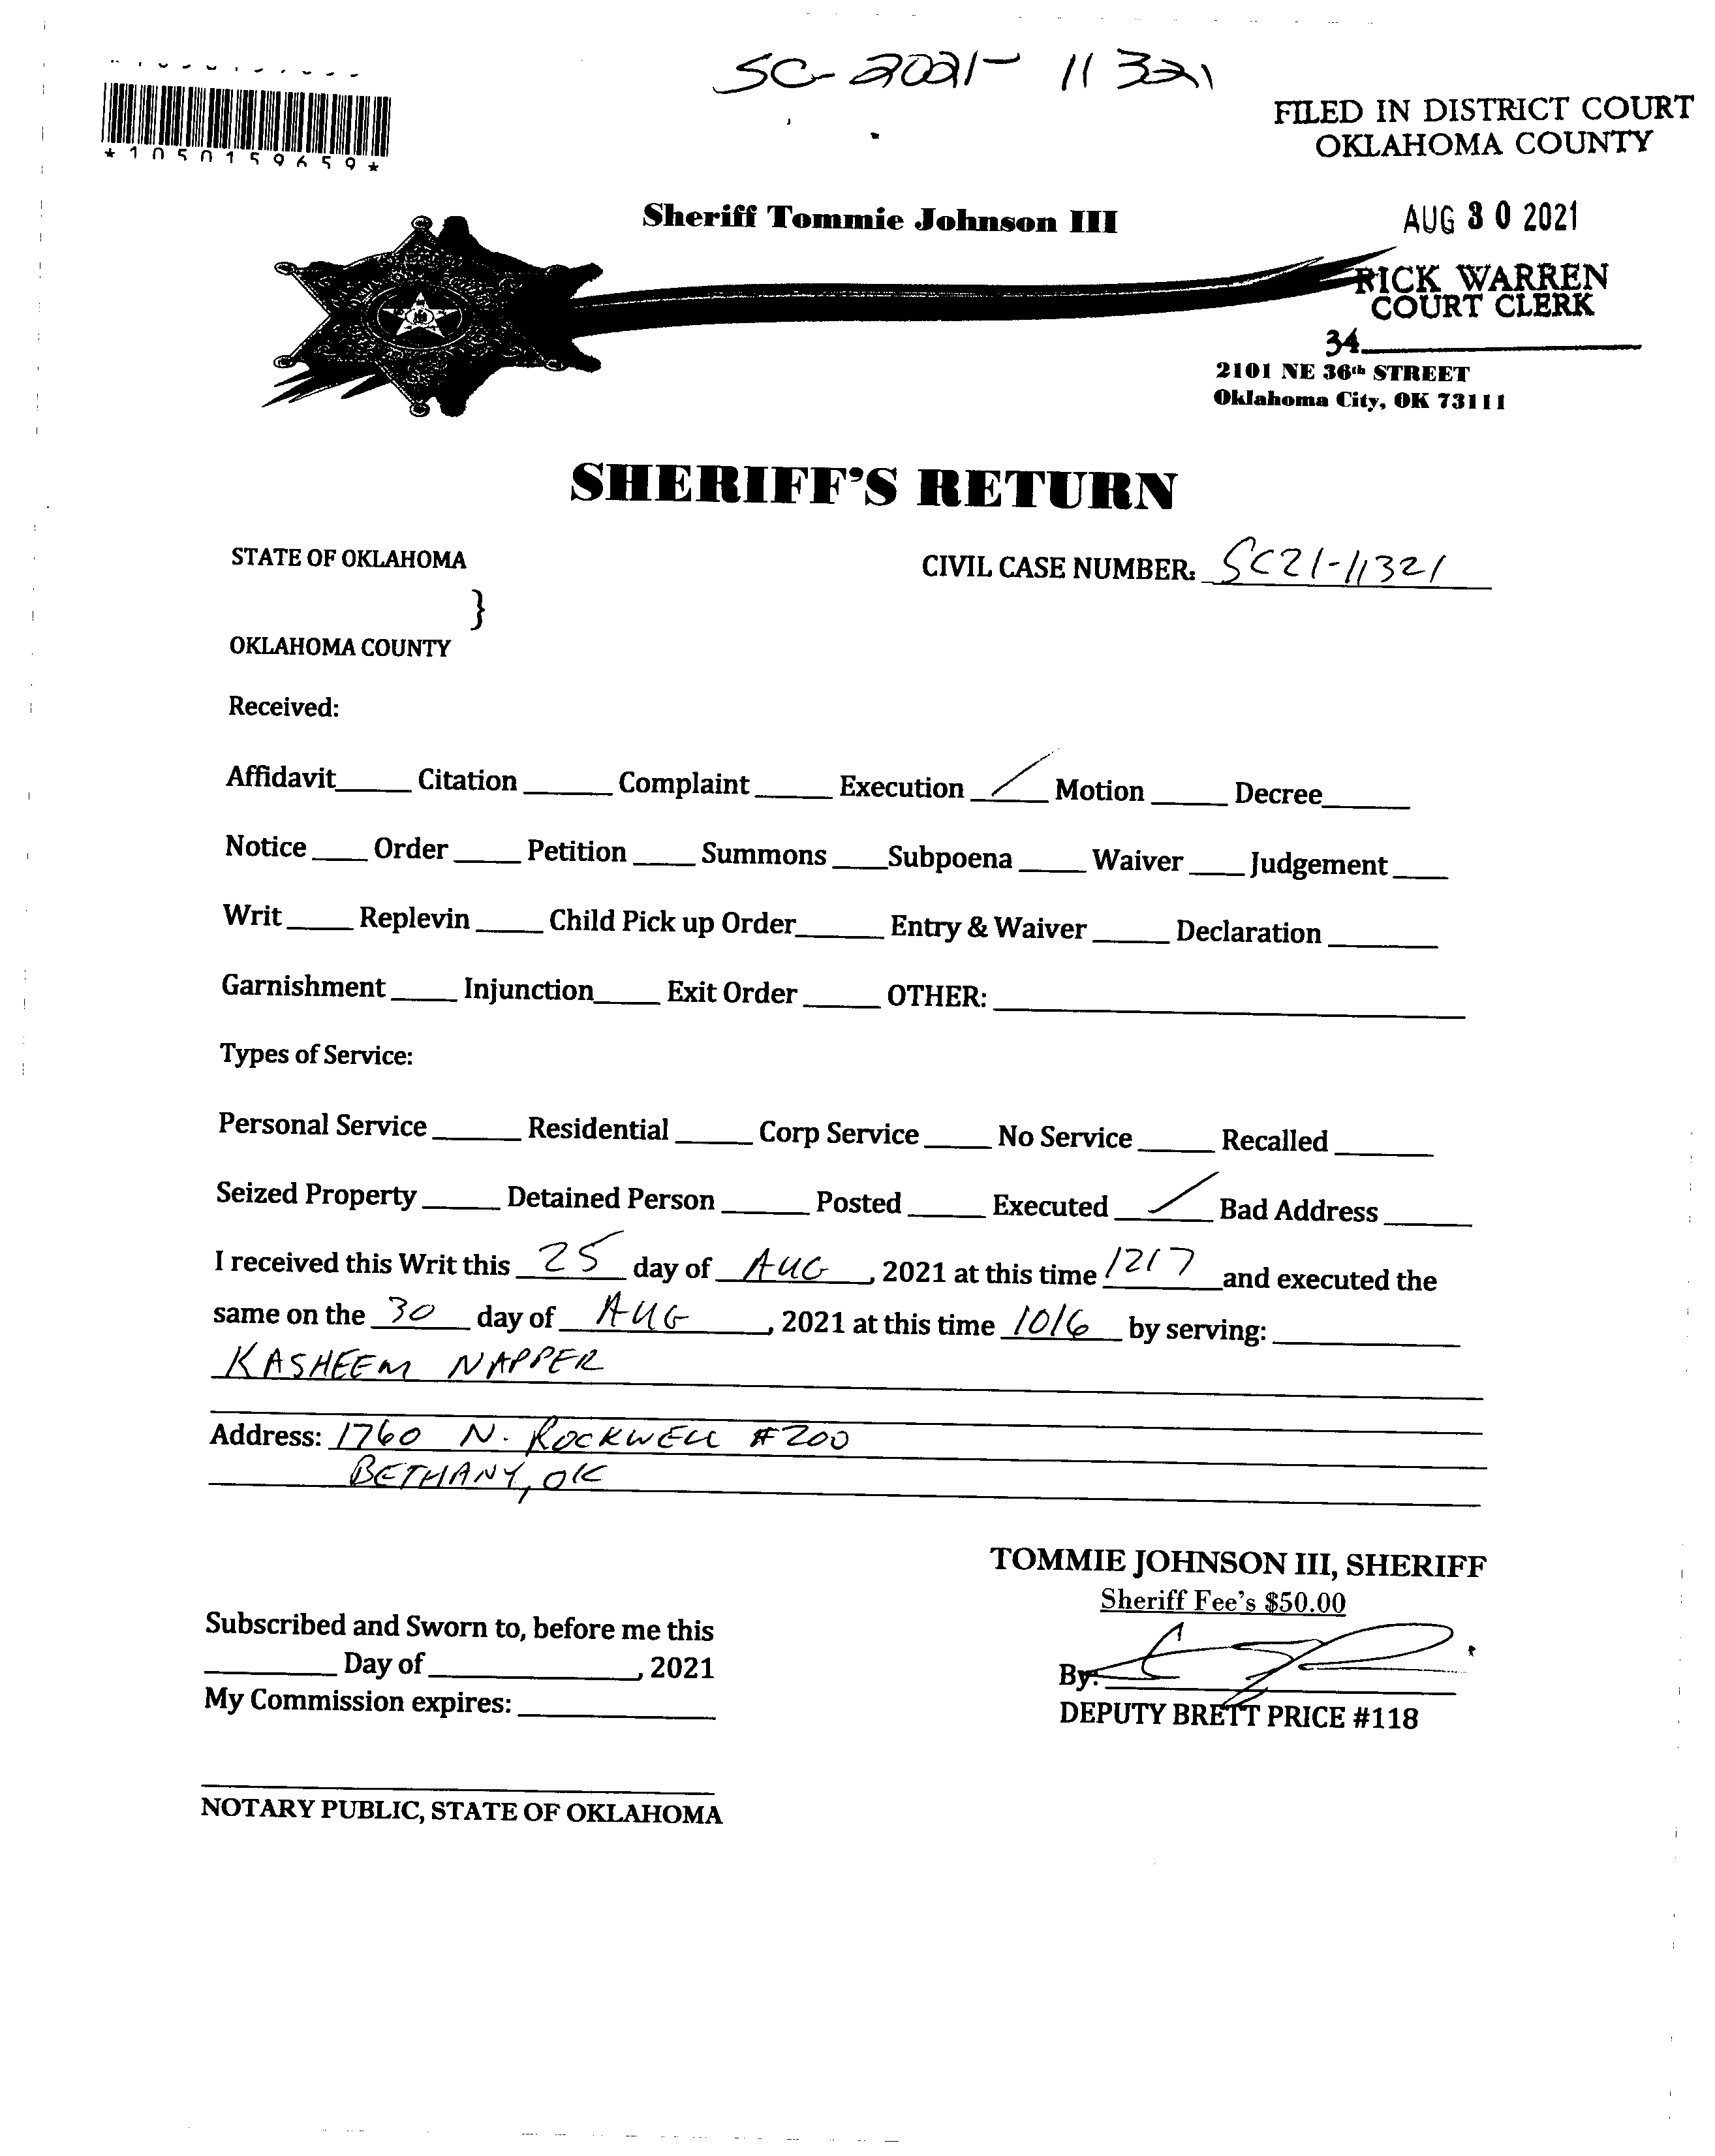 SC-2021-11321
*1050159659*
FILED IN DISTRICT COURT
OKLAHOMA COUNTY
Sheriff Tommie Johnson III
AUG 30 2021
RICK WARREN
COURT CLERK
34
2101 NE 36th STREET
Oklahoma City, OK 73111
SHERIFF'S RETURN
STATE OF OKLAHOMA
CIVIL CASE NUMBER: SC21-11321
}
OKLAHOMA COUNTY
Received:
Affidavit_____ Citation_____ Complaint_____ Execution __/__ Motion_____ Decree_____
Notice____ Order____ Petition____ Summons____ Subpoena____ Waiver____ Judgement____
Writ____ Replevin____ Child Pick up Order_____ Entry & Waiver_____ Declaration_____
Garnishment____ Injunction____ Exit Order_____ OTHER: __________
Types of Service:
Personal Service_____ Residential_____ Corp Service____ No Service_____ Recalled_____
Seized Property_____ Detained Person_____ Posted_____ Executed __/__ Bad Address_____
I received this Writ this 25 day of AUG, 2021 at this time 1217 and executed the
same on the 30 day of AUG, 2021 at this time 1016 by serving: __________
KASHEEM NAPPER
Address: 1760 N. ROCKWELL #200
BETHANY, OK
TOMMIE JOHNSON III, SHERIFF
Sheriff Fee's $50.00
Subscribed and Sworn to, before me this
_____ Day of __________, 2021
By:
My Commission expires: __________
DEPUTY BRETT PRICE #118
NOTARY PUBLIC, STATE OF OKLAHOMA